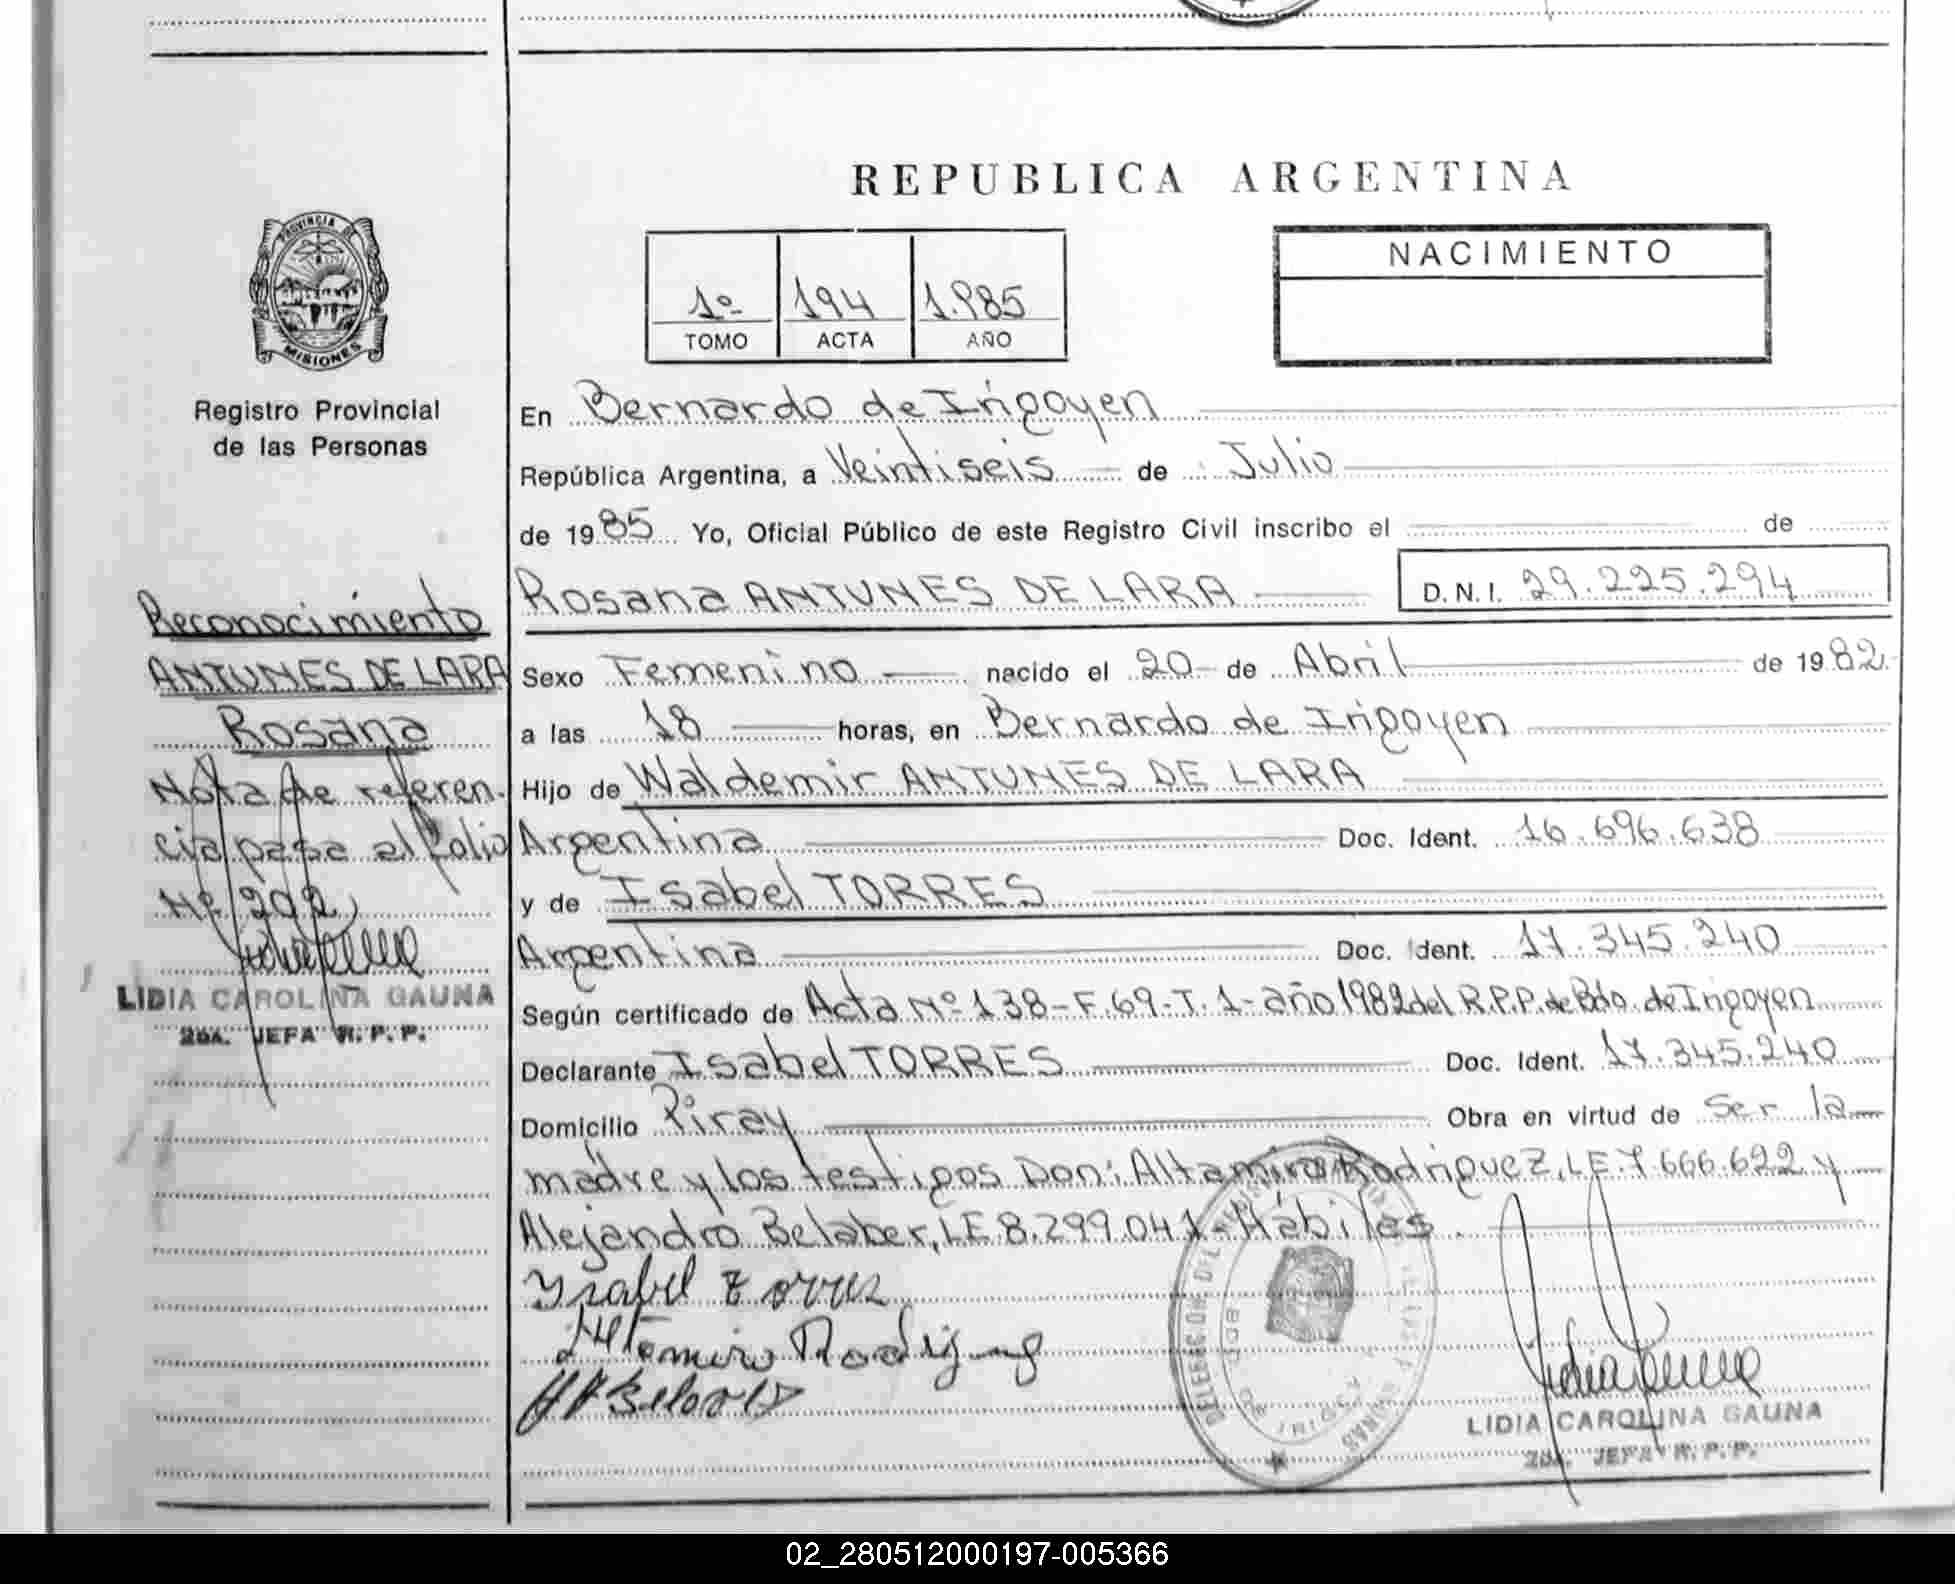 REPUBLICA ARGENTINA
PROVINCIA DE
MISIONES
Registro Provincial
de las Personas
Reconocimiento
ANTUNES DE LARA
Rosana
Nota de referen-
cia pasa al folio
Nº 202
LIDIA CAROLINA GAUNA
2da. JEFA R. P. P.
1º 194 1.985
TOMO ACTA AÑO
NACIMIENTO
En Bernardo de Irigoyen
República Argentina, a Veintiseis de Julio
de 1985 Yo, Oficial Público de este Registro Civil inscribo el de
Rosana ANTUNES DE LARA D.N.I. 29.225.294
Sexo Femenino nacido el 20 de Abril de 1982
a las 18 horas, en Bernardo de Irigoyen
Hijo de Waldemir ANTUNES DE LARA
Argentina Doc. Ident. 16.696.638
y de Isabel TORRES
Argentina Doc. Ident. 17.345.240
Según certificado de Acta Nº 138-F.69-T.1-año 1982 del R.P.P. de Bdo. de Irigoyen
Declarante Isabel TORRES Doc. Ident. 17.345.240
Domicilio Piray Obra en virtud de Ser la
madre y los testigos Don: Altamiro Rodriguez, LE.7.666.622 y
Alejandro Belaber, LE 8.299.041-Hábiles.
Ysabel Torres
Altemiro Rodrigues
LIDIA CAROLINA GAUNA
2da. JEFA R. P. P.
02_280512000197-005366